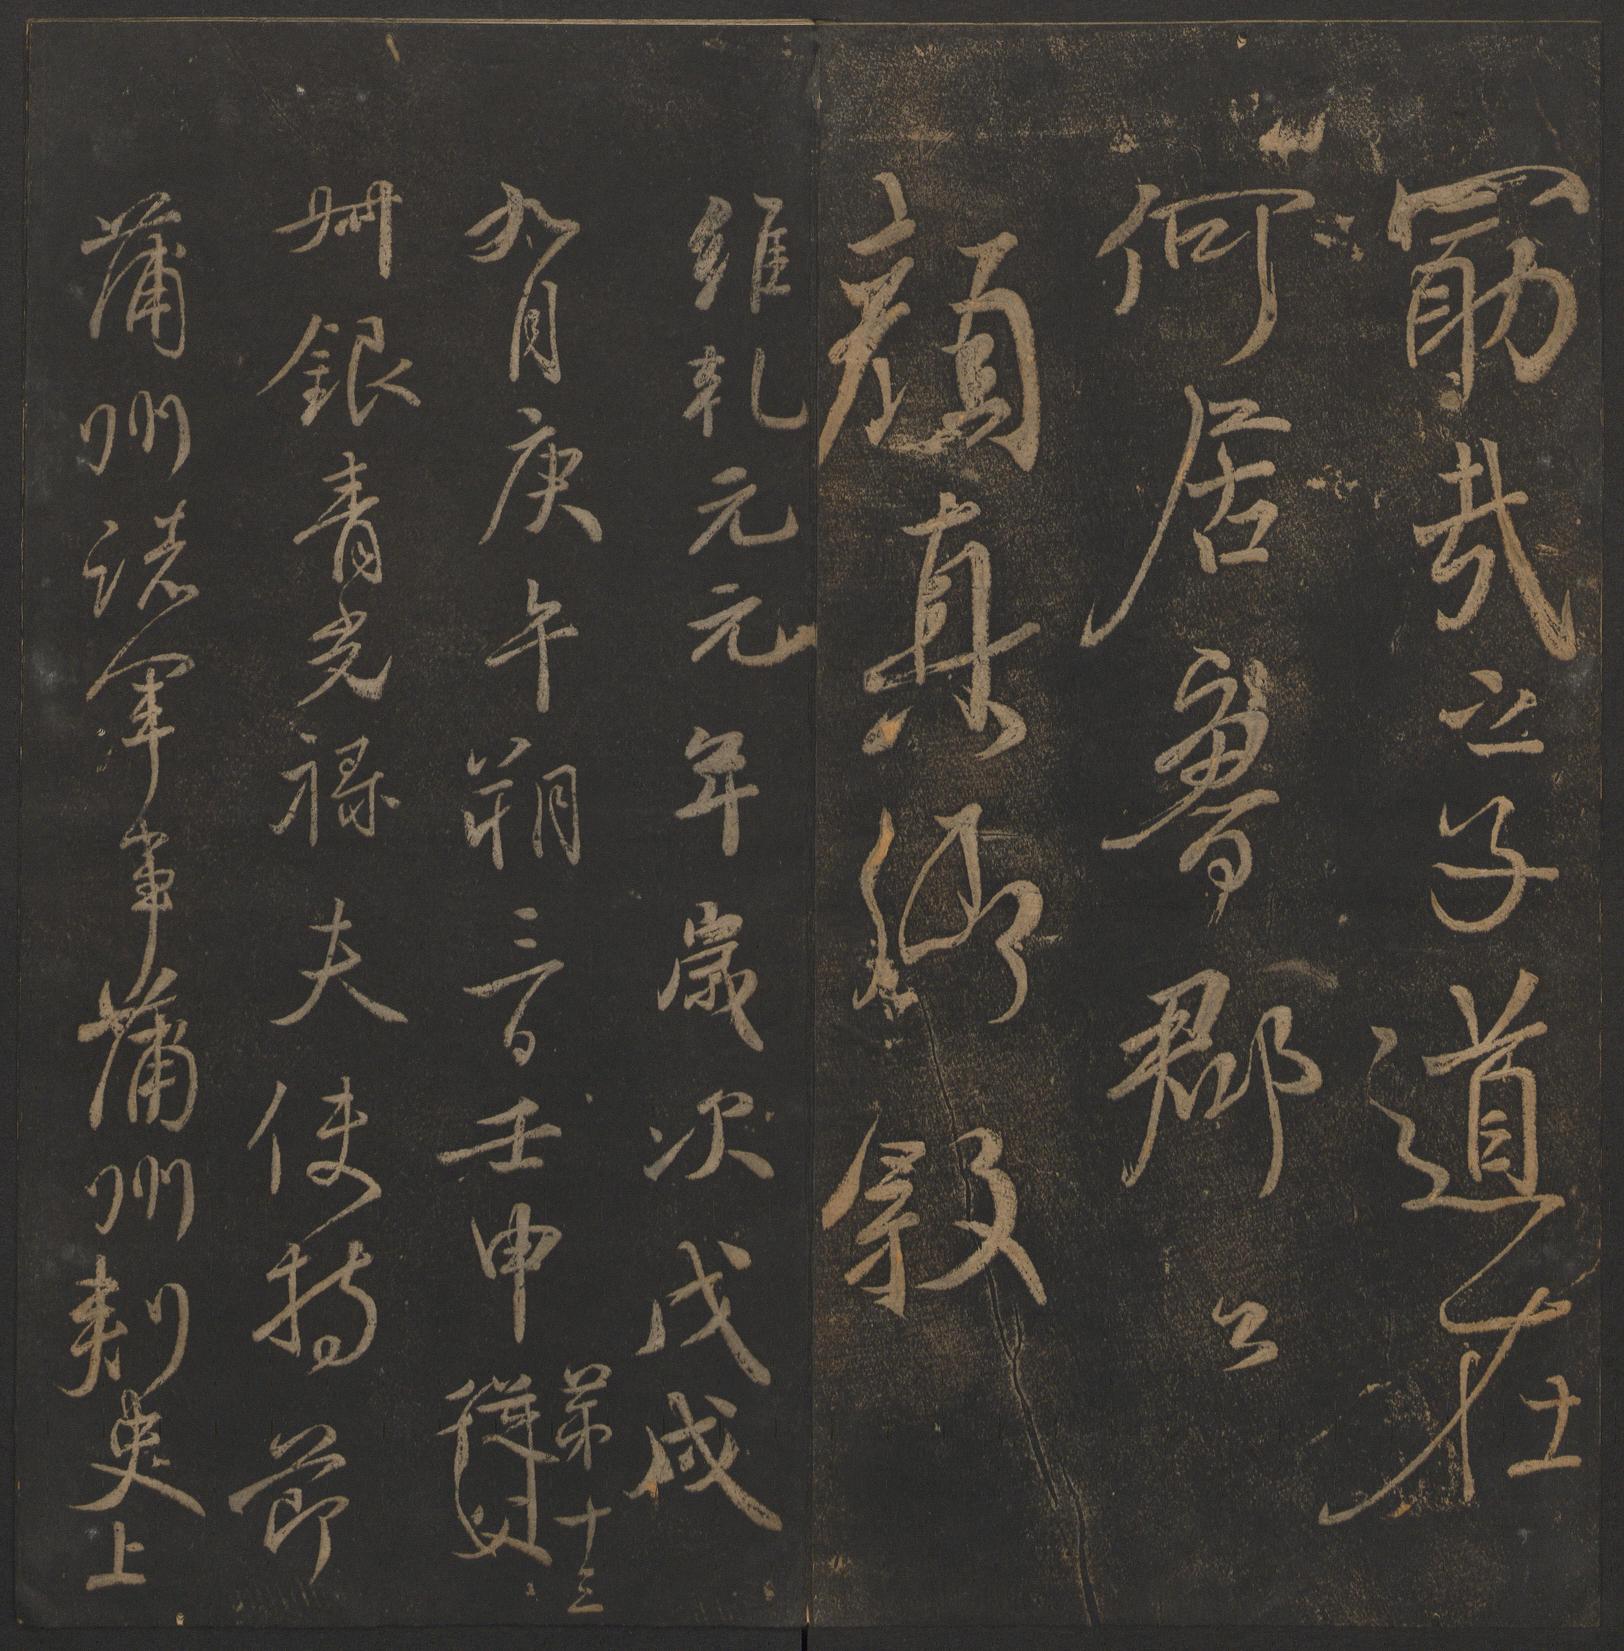 勗哉之子道在
何居魯郡公
顏真卿叙
維乾元元年歲次戊戌
九月庚午朔三日壬申第十三從父
叔銀青光祿夫使持節
蒲州諸軍事蒲州刺史上